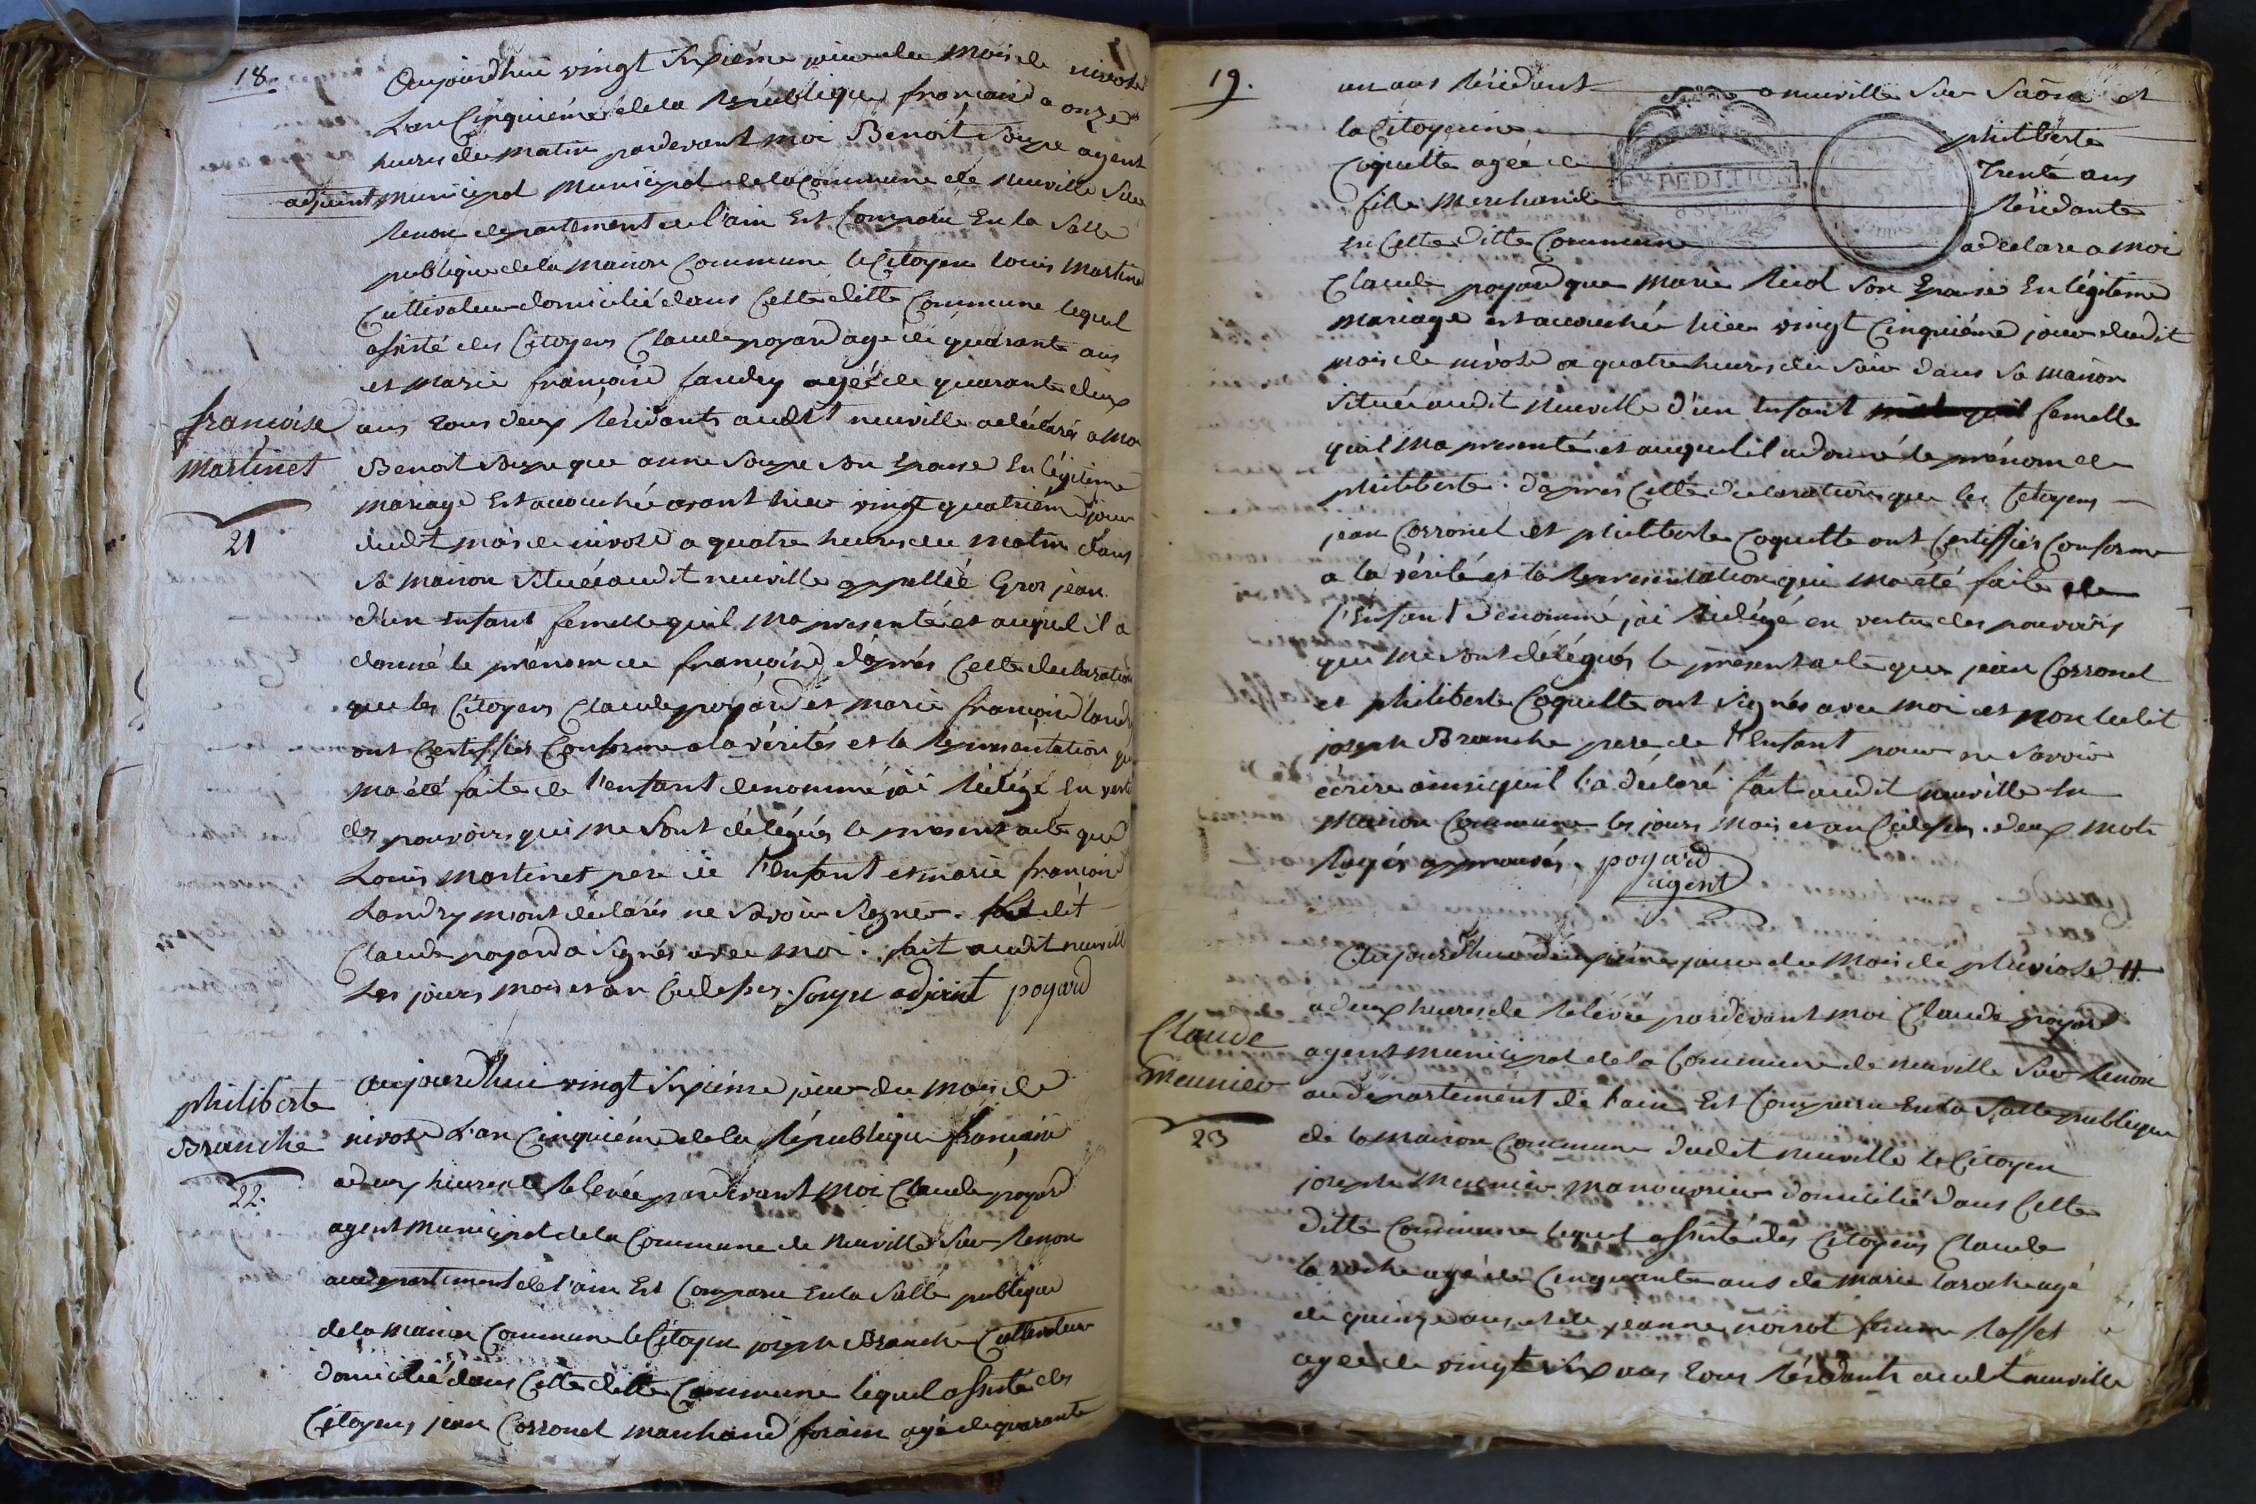 18.
Aujourdhui vingt sixiéme jour du mois de nivose
L'an Cinquiéme de la République françaisе a onze
heures du matin pardevant moi Benoit Soupe agent
adjoint municipal municipal de la Commune de neuville sur
Renon departement de l'ain Est Comparu En la Salle
publique de la maison Commune le Citoyen louis martinet
Cultivateur domicilié dans Cette ditte Commune lequel
assisté des Citoyens Claude poyard agé de quarante ans
et marie françoise landry agée de quarante deux
ans tous deux Résidants audit neuville a déclaré a moi
Benoit Soupe que anne Soupe son Epouse En légitime
mariage Est accouchée avant hier vingt quatriéme jour
dudit mois de nivose a quatre heures du matin dans
sa maison située audit neuville appellée Gros jean
d'un Enfant femelle quil ma presenté et auquel il a
donné le prénom de françoise d'aprés Cette declaration
que les Citoyens Claude poyard et marie françoise landry
ont Certiffiés Conforme a la vérités et la Représentation qui
ma été faite de l'enfant denommé jái Rédigé En vertu
des pouvoirs qui me Sont délégués le present acte que
Louis martinet pere de l'Enfant et marie françoise
Landry m'ont déclarés ne Savoir Signer. ledit
Claude poyard a Signés avec moi. fait audit neuville
Les jours mois et an Cidessus. Soupe adjoint poyard
françoise
martinet
21
philiberte
Branche
22.
aujourdhui vingt sixiéme jour du mois de
nivose L'an Cinquiéme de la République françaisе
a deux heures de Relevée pardevant moi Claude poyard
agent municipal de la Commune de neuville Sur Renon
au departement de l'ain Est Comparu En la Salle publique
de la maison Commune le Citoyen joseph Branche Cultivateur
domicilié dans Cette ditte Commune lequel assisté des
Citoyens jean Corronel marchand forain agé de quarante
19.
un ans Résidant a neuville Sur Saône et
la Citoyenne philiberte
Coquette agée de Trente ans
fille marchande Résidante
En Cette ditte Commune a declare a moi
EXPEDITION.
Claude poyard que marie Riol Son Epouse En légitime
mariage est accouchée hier vingt Cinquiéme jour dudit
mois de nivose a quatre heures du Soir dans Sa maison
Située audit neuville d'un Enfant femelle
quil ma presenté et auquel il a donné le prénom de
philiberte. dapres Cette declaration que les Citoyens
jean Corronel et philiberte Coquette ont Certiffiés Conforme
a la vérité et la Representation qui ma été faite de
l'Enfant denommé jai Rédigé en vertu des pouvoirs
qui me Sont délégués le présent acte que jean Corronel
et philiberte Coquette ont Signés avec moi et non ledit
joseph Branche pere de l'Enfant pour ne Savoir
écrire ainsi quil l'a déclaré. fait audit neuville En
maison Commune les jours mois et an Cidessus. deux mots
Rayés approuvés. poyard
agent
Claude
meunier
23
Aujourdhui deuxiéme jour du mois de pluviose #
a deux heures de Relévée pardevant moi Claude poyard
agent municipal de la Commune de neuville Sur Renon
au departement de l'ain Est Comparu En la Salle publique
de la maison Commune dudit neuville le Citoyen
joseph meunier manouvrier domicilié dans Cette
ditte Commune lequel assisté des Citoyens Claude
la roche agé de Cinquante ans de marie laroche agé
de quinze ans et de jeanne noirot femme Rosset
agée de vingt six ans tous Résidants audit neuville